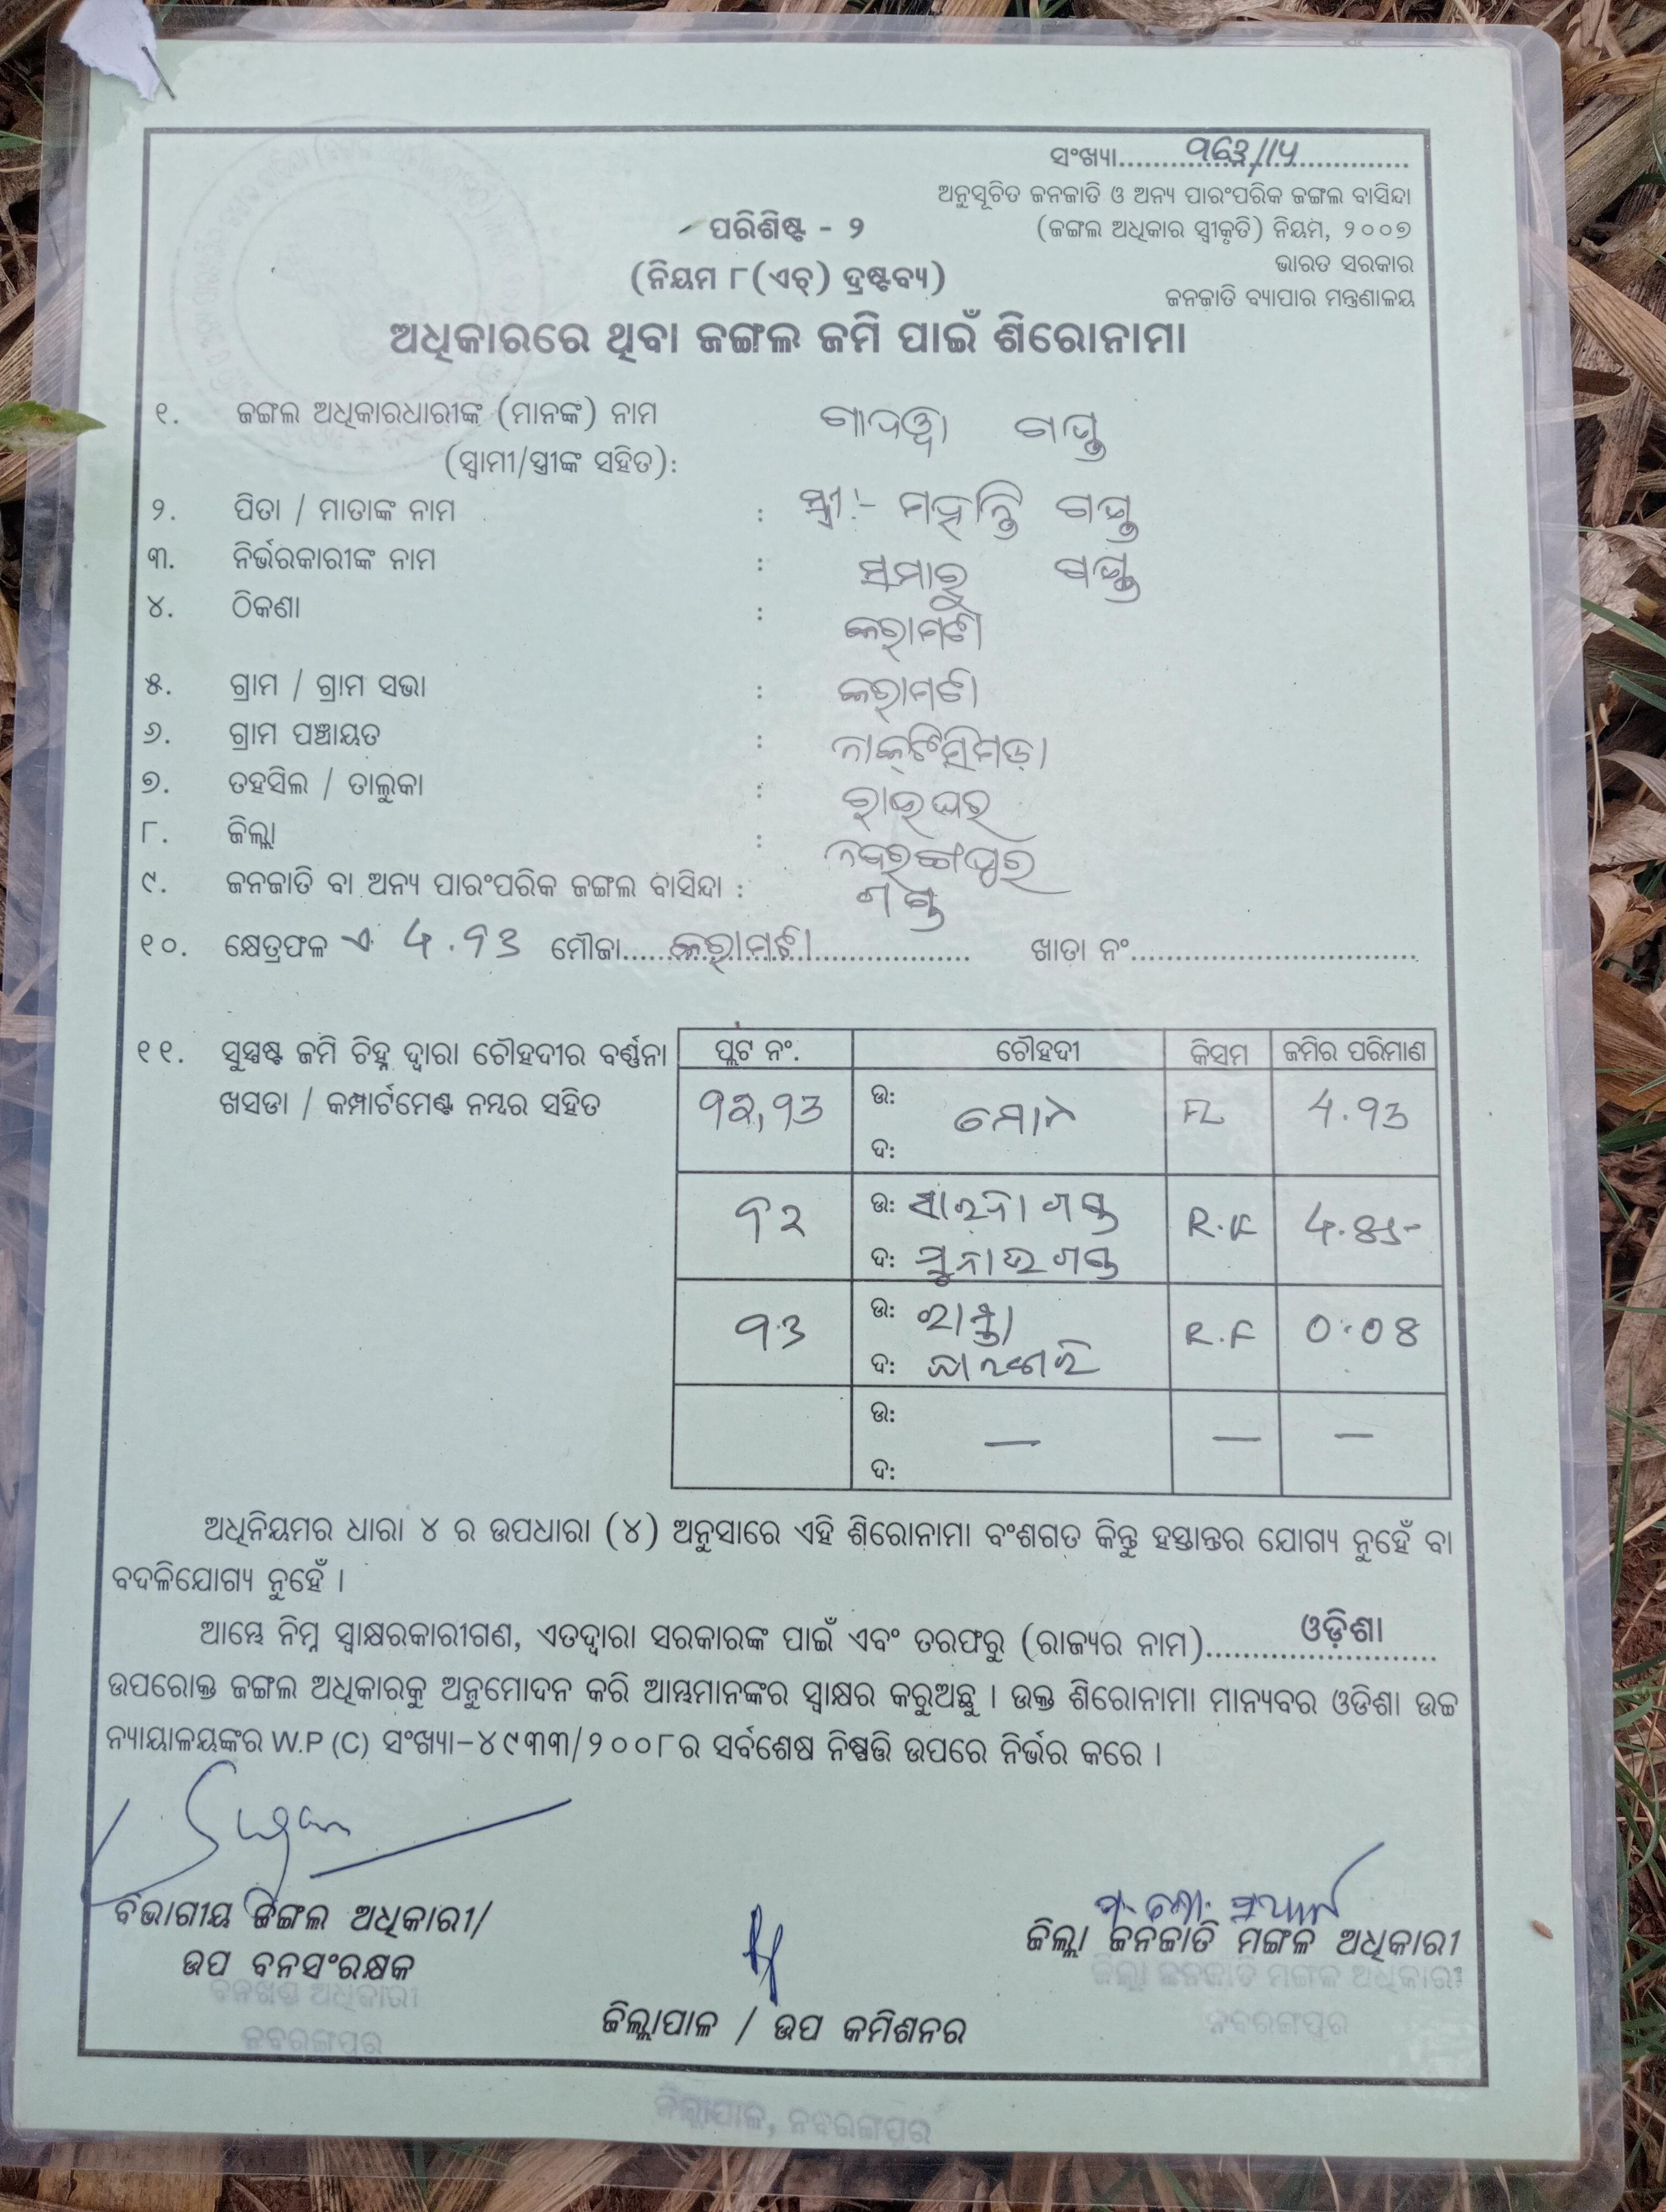 ସଂଖ୍ୟା.......୩୬୩/୧୪.......
ଅନୁସୂଚିତ ଜନଜାତି ଓ ଅନ୍ୟ ପାରଂପରିକ ଜଙ୍ଗଲ ବାସିନ୍ଦା
ପରିଶିଷ୍ଟ - ୨
(ଜଙ୍ଗଲ ଅଧିକାର ସ୍ୱୀକୃତି) ନିୟମ, ୨୦୦୭
(ନିୟମ ୮(ଏଚ୍) ଦ୍ରଷ୍ଟବ୍ୟ)
ଭାରତ ସରକାର
ଜନଜାତି ବ୍ୟାପାର ମନ୍ତ୍ରଣାଳୟ
ଅଧିକାରରେ ଥିବା ଜଙ୍ଗଲ ଜମି ପାଇଁ ଶିରୋନାମା
୧. ଜଙ୍ଗଲ ଅଧିକାରଧାରୀଙ୍କ (ମାନଙ୍କ) ନାମ ଗଣ୍ଡ
(ସ୍ୱାମୀ/ସ୍ତ୍ରୀଙ୍କ ସହିତ):
୨. ପିତା / ମାତାଙ୍କ ନାମ : ସ୍ତ୍ରୀ:- ମହାନ୍ତି ଗଣ୍ଡ
୩. ନିର୍ଭରକାରୀଙ୍କ ନାମ : ସମାରୁ ଗଣ୍ଡ
୪. ଠିକଣା : କରାମଟୀ
୫. ଗ୍ରାମ / ଗ୍ରାମ ସଭା : କରାମଟୀ
୬. ଗ୍ରାମ ପଞ୍ଚାୟତ : ନାକ୍ଟିସିମଡ଼ା
୭. ତହସିଲ / ତାଲୁକା : ରାଇଘର
୮. ଜିଲ୍ଲା : ନବରଙ୍ଗପୁର
୯. ଜନଜାତି ବା ଅନ୍ୟ ପାରଂପରିକ ଜଙ୍ଗଲ ବାସିନ୍ଦା : ଗଣ୍ଡ
୧୦. କ୍ଷେତ୍ରଫଳ ଏ 4.93 ମୌଜା.....କରାମଟୀ............ ଖାତା ନଂ..............................
୧୧. ସୁସ୍ପଷ୍ଟ ଜମି ଚିହ୍ନ ଦ୍ୱାରା ଚୌହଦୀର ବର୍ଣ୍ଣନା
ଖସଡା / କମ୍ପାର୍ଟମେଣ୍ଟ ନମ୍ଭର ସହିତ
ପ୍ଲଟ ନଂ. ଚୌହଦୀ କିସମ ଜମିର ପରିମାଣ
92,93 ଉ: ମୋଟ 4.93
ଦ:
92 ଉ: ଗଣ୍ଡ R.F 4.85
ଦ: ସୁନାଉ ଗଣ୍ଡ
93 ଉ: ରାସ୍ତା R.F 0.08
ଦ:
ଉ: — — —
ଦ:
ଅଧିନିୟମର ଧାରା ୪ ର ଉପଧାରା (୪) ଅନୁସାରେ ଏହି ଶିରୋନାମା ବଂଶଗତ କିନ୍ତୁ ହସ୍ତାନ୍ତର ଯୋଗ୍ୟ ନୁହେଁ ବା
ବଦଳିଯୋଗ୍ୟ ନୁହେଁ ।
ଆମ୍ଭେ ନିମ୍ନ ସ୍ୱାକ୍ଷରକାରୀଗଣ, ଏତଦ୍ୱାରା ସରକାରଙ୍କ ପାଇଁ ଏବଂ ତରଫରୁ (ରାଜ୍ୟର ନାମ)........ଓଡ଼ିଶା........
ଉପରୋକ୍ତ ଜଙ୍ଗଲ ଅଧିକାରକୁ ଅନୁମୋଦନ କରି ଆମ୍ଭମାନଙ୍କର ସ୍ୱାକ୍ଷର କରୁଅଛୁ । ଉକ୍ତ ଶିରୋନାମା ମାନ୍ୟବର ଓଡିଶା ଉଚ୍ଚ
ନ୍ୟାୟାଳୟଙ୍କର W.P (C) ସଂଖ୍ୟା-୪୯୩୩/୨୦୦୮ର ସର୍ବଶେଷ ନିଷ୍ପତ୍ତି ଉପରେ ନିର୍ଭର କରେ ।
ବିଭାଗୀୟ ଜଙ୍ଗଲ ଅଧିକାରୀ/
ଉପ ବନସଂରକ୍ଷକ
ବନଖଣ୍ଡ ଅଧିକାରୀ
ନବରଙ୍ଗପୁର
ଜିଲ୍ଲାପାଳ / ଉପ କମିଶନର
ଜିଲ୍ଲା ଜନଜାତି ମଙ୍ଗଳ ଅଧିକାରୀ
ଜିଲ୍ଲା ଜନଜାତି ମଙ୍ଗଳ ଅଧିକାରୀ
ନବରଙ୍ଗପୁର
ଜିଲ୍ଲାପାଳ, ନବରଙ୍ଗପୁର